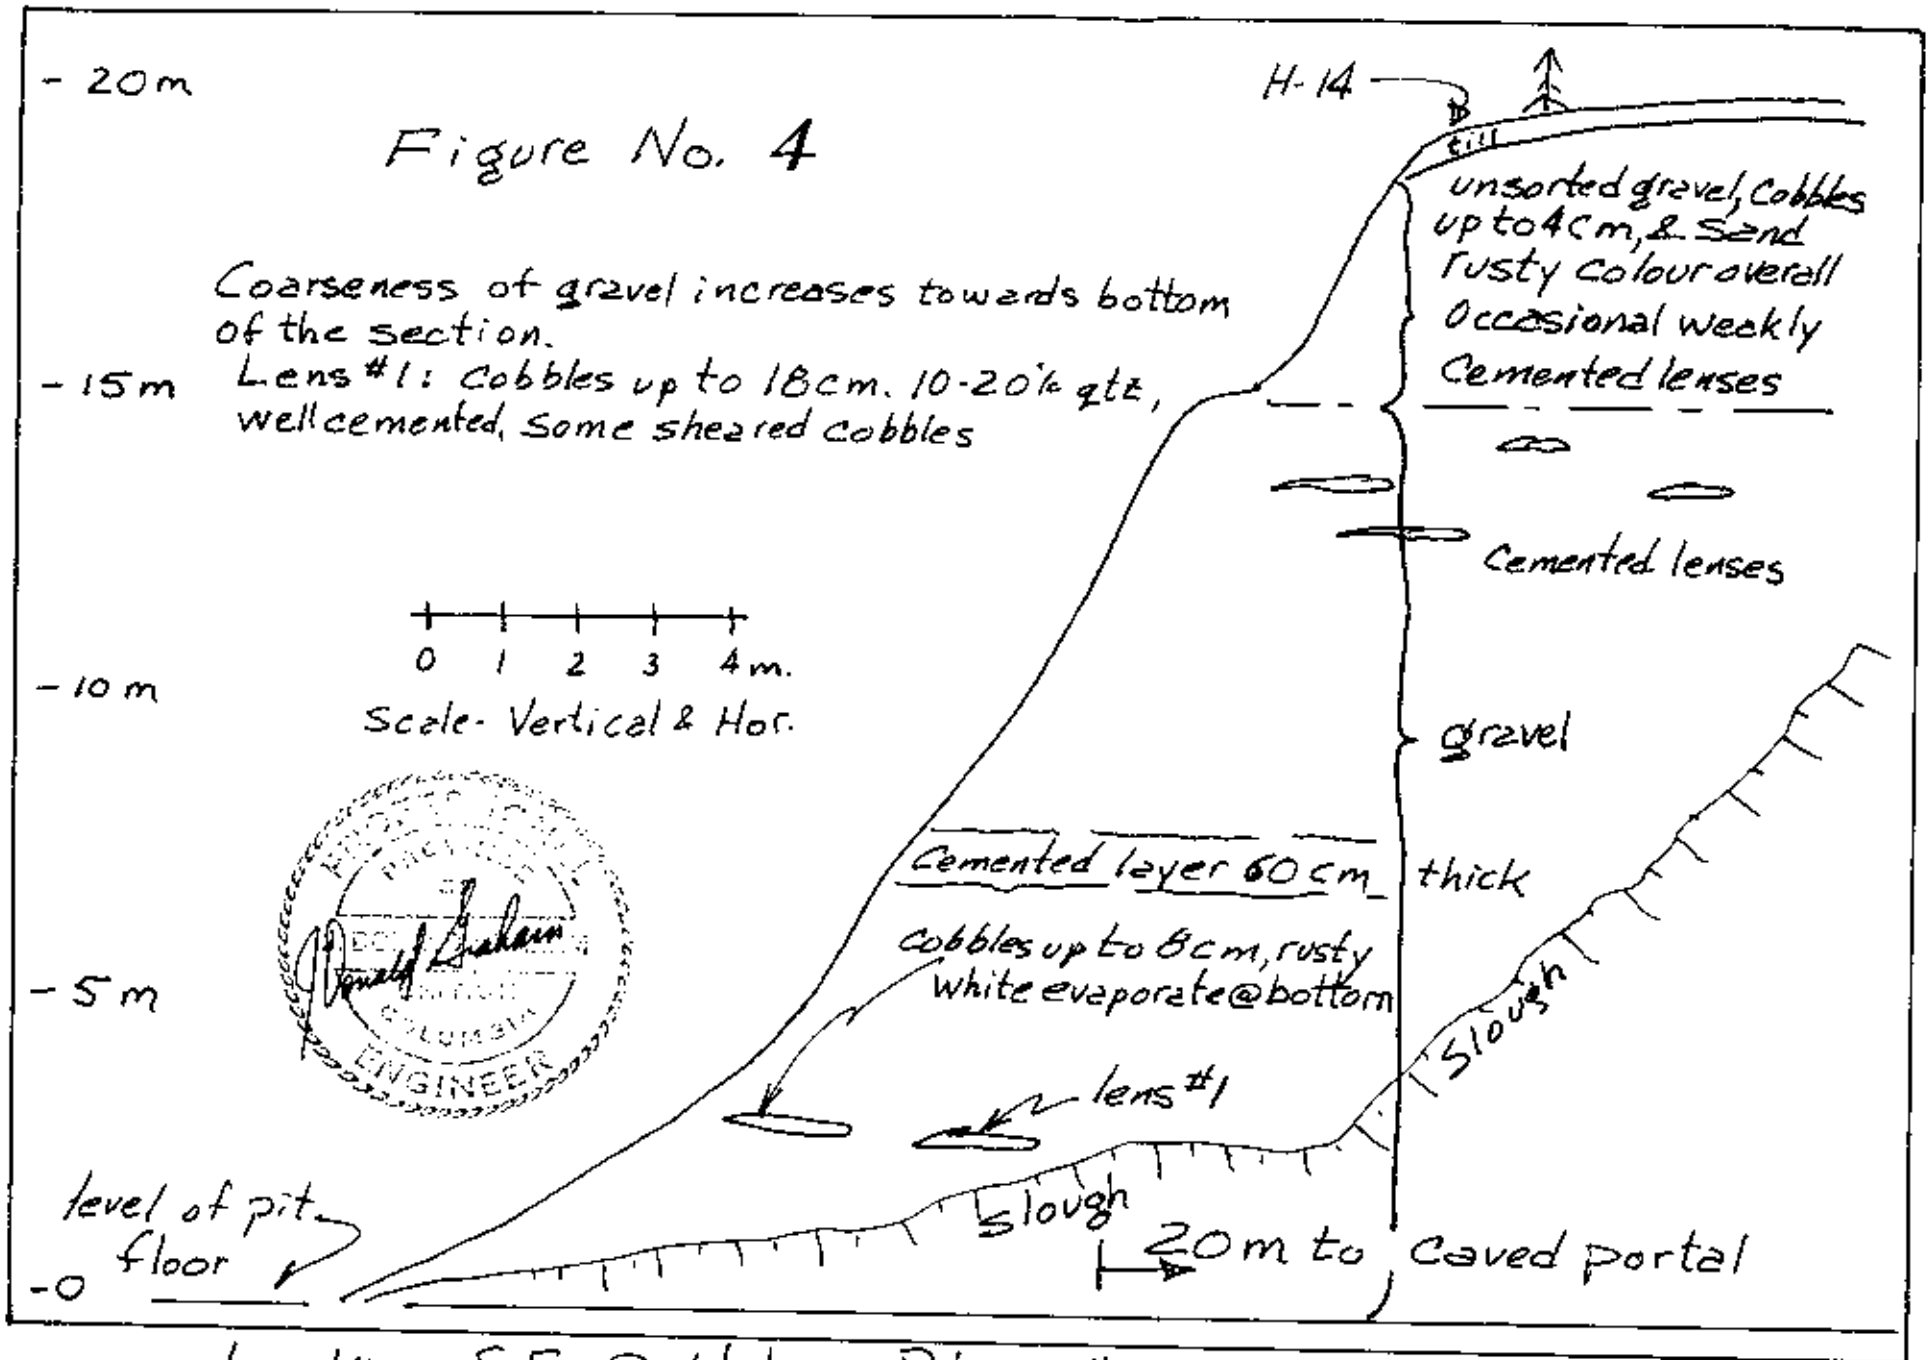 - 20m
H-14
Figure No. 4
till
unsorted gravel, Cobbles
up to 4cm, & Sand
rusty colour overall
Occasional weakly
Cemented lenses
Coarseness of gravel increases towards bottom
of the section.
- 15m
Lens #1: Cobbles up to 18cm. 10-20% qtz,
well cemented, Some sheared cobbles
Cemented lenses
0 1 2 3 4 m.
Scale- Vertical & Hor.
- 10 m
gravel
Cemented layer 60 cm thick
Cobbles up to 8cm, rusty
white evaporate@bottom
- 5 m
Donald Graham
COLUMBIA
ENGINEER
Slough
lens #1
level of pit
floor
Slough
20m to Caved portal
-0